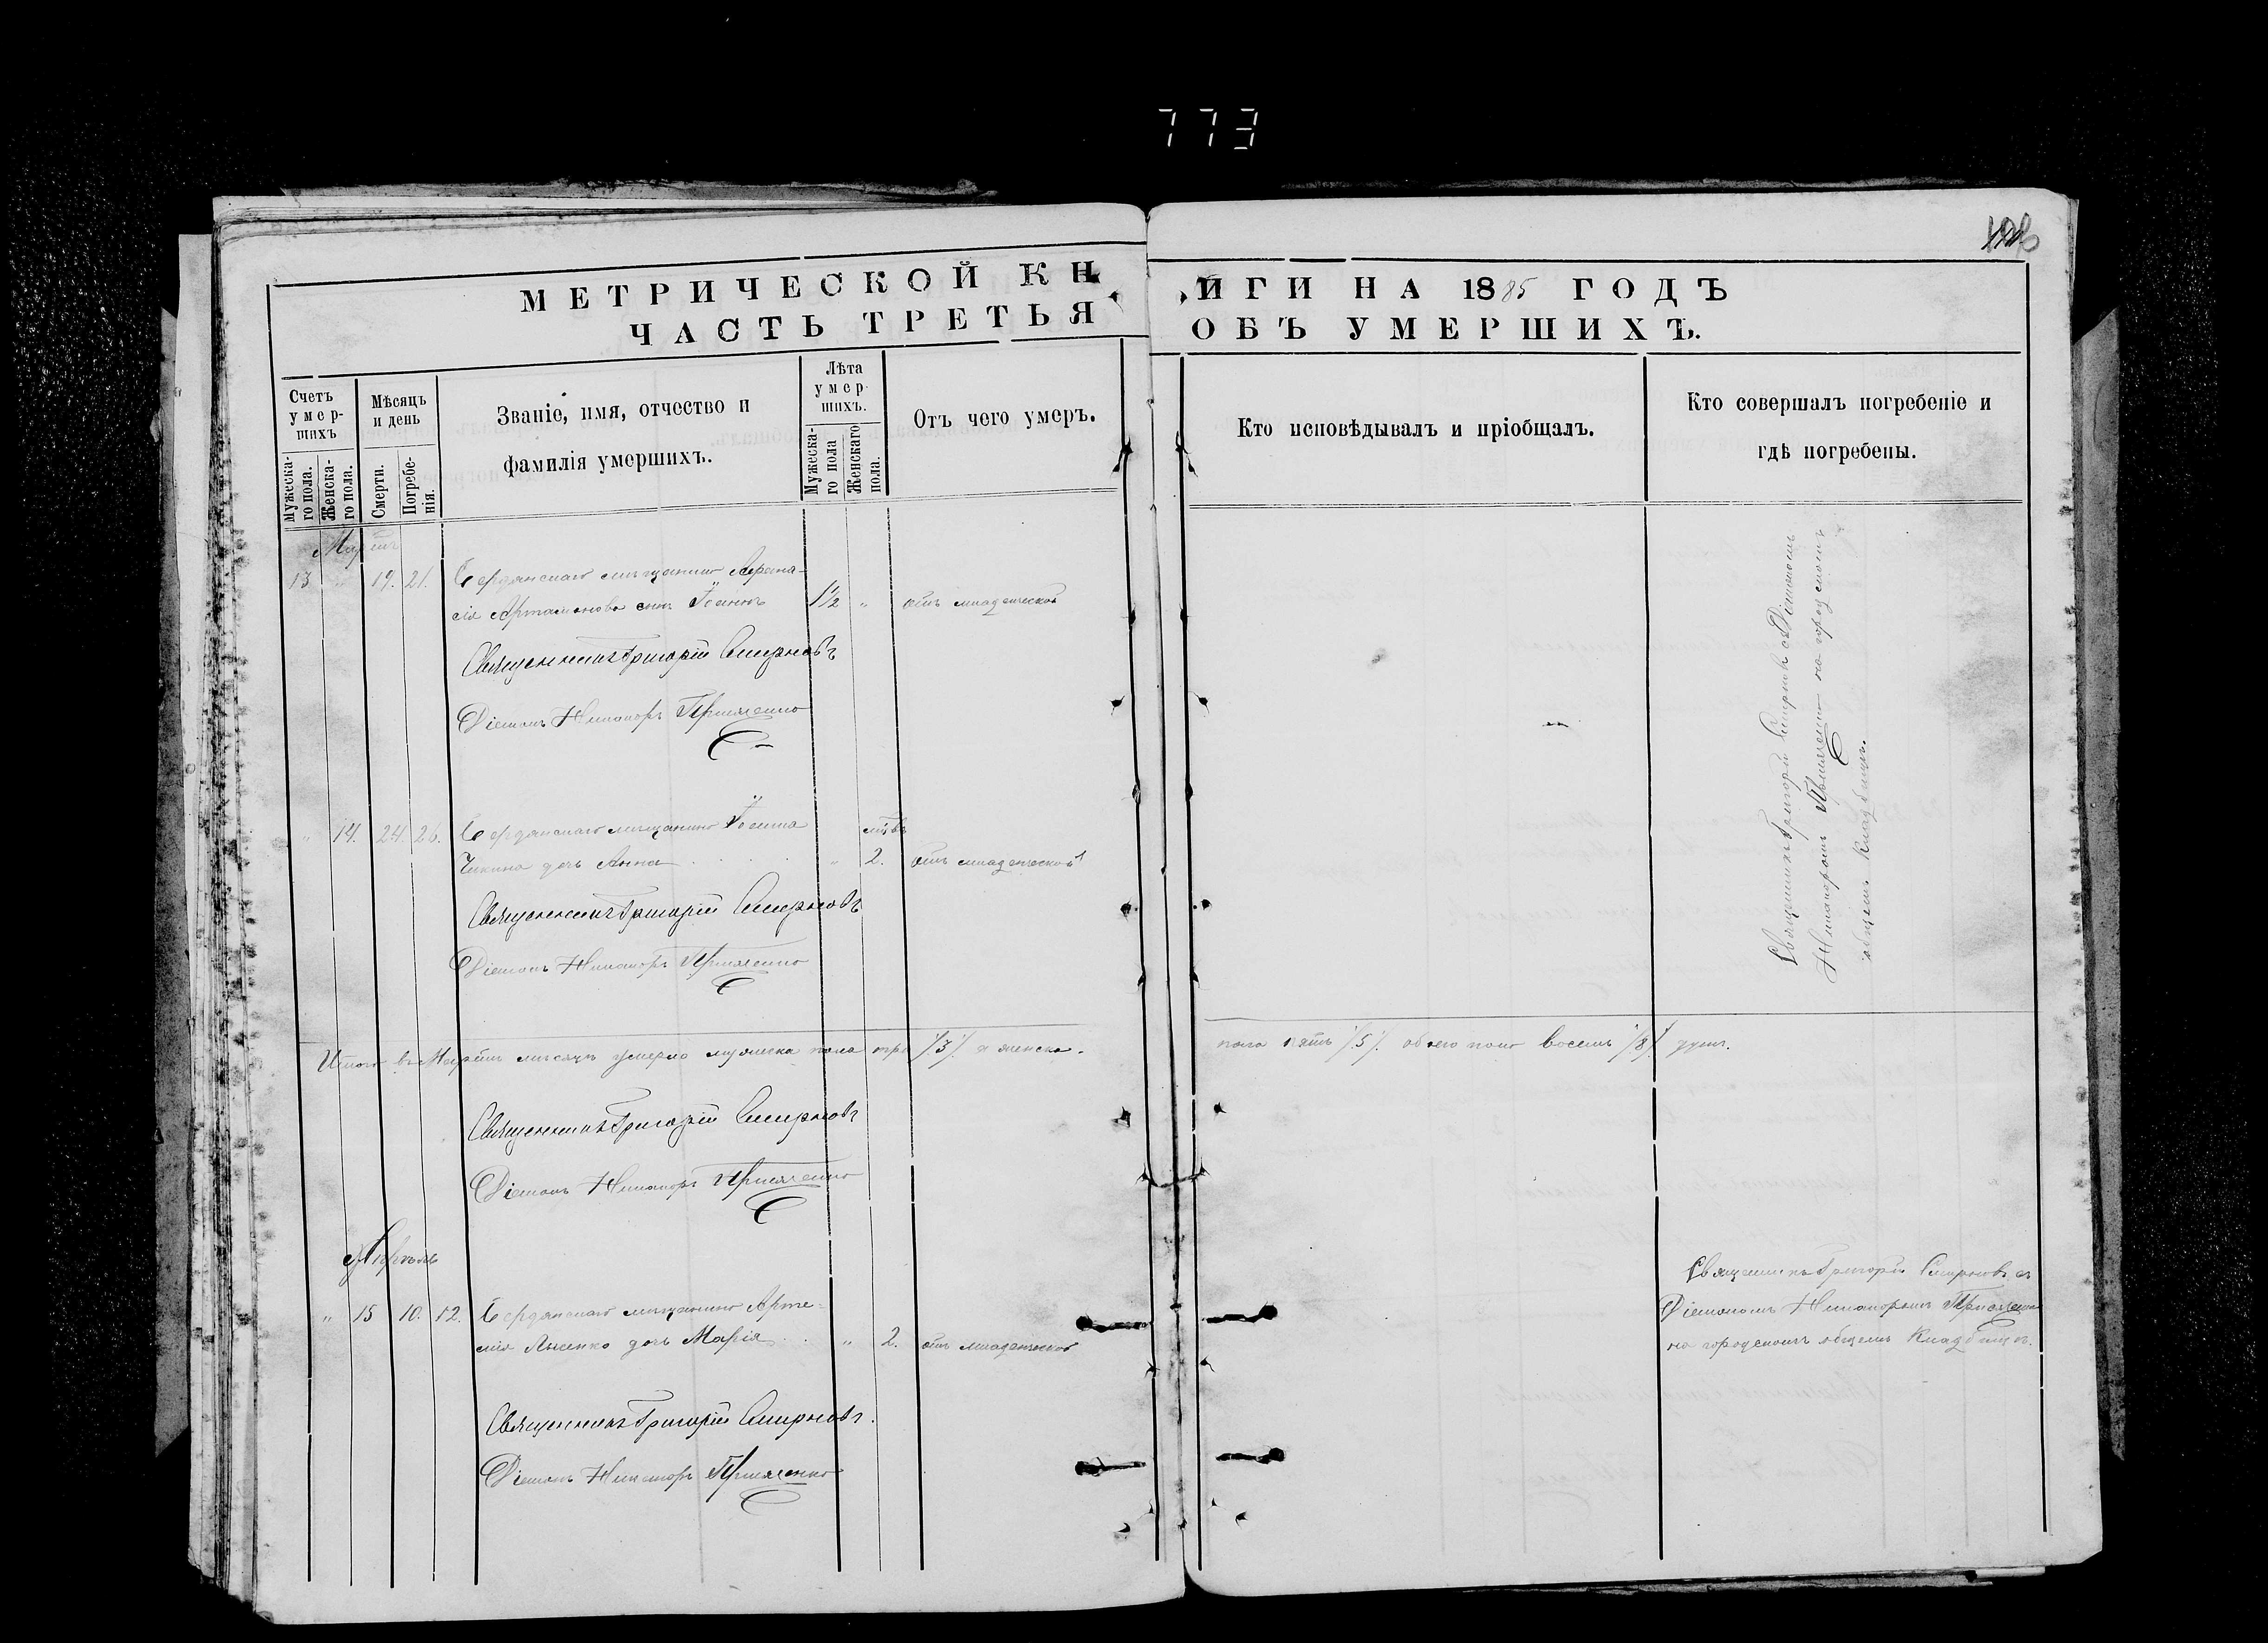 773
МЕТРИЧЕСКОЙ КНИГИ НА 1885 ГОДЪ
ЧАСТЬ ТРЕТЬЯ ОБЪ УМЕРШИХЪ.
Счетъ умершихъ
Мужеска-го пола.
Женска-го пола.
Мѣсяцъ и день
Смерти.
Погребе-нія.
Званіе, имя, отчество и
фамилія умершихъ.
Лѣта умер-шихъ.
Мужеска-го пола
Женскаго пола.
Отъ чего умеръ.
Кто исповѣдывалъ и пріобщалъ.
Кто совершалъ погребеніе и
гдѣ погребены.
Мартъ
13 " 19. 21. Бердянскаго мѣщанина Афана-
сія Артамонова сынъ Іоаннъ 1½ " отъ младенческой
Священникъ Григорій Смирновъ
Діаконъ Никаноръ
Священникъ Григорій Смирновъ съ Діакономъ
Никаноромъ на городскомъ
общемъ кладбищѣ.
" 14. 24. 26. Бердянскаго мѣщанина
дочь Анна " 2. отъ младенческой
Священникъ Григорій Смирновъ
Діаконъ Никаноръ
Итого въ Мартѣ мѣсяцѣ умерло мужеска пола три /3/. а женска. пола пять /5/. обоего пола восемь /8/ душъ.
Священникъ Григорій Смирновъ
Діаконъ Никаноръ
Апрѣль
" 15 10. 12. Бердянскаго мѣщанина Арте-
мія дочь Марія " 2. отъ младенческой
Священникъ Григорій Смирновъ съ
Діакономъ Никаноромъ
на городскомъ общемъ кладбищѣ.
Священникъ Григорій Смирновъ.
Діаконъ Никаноръ